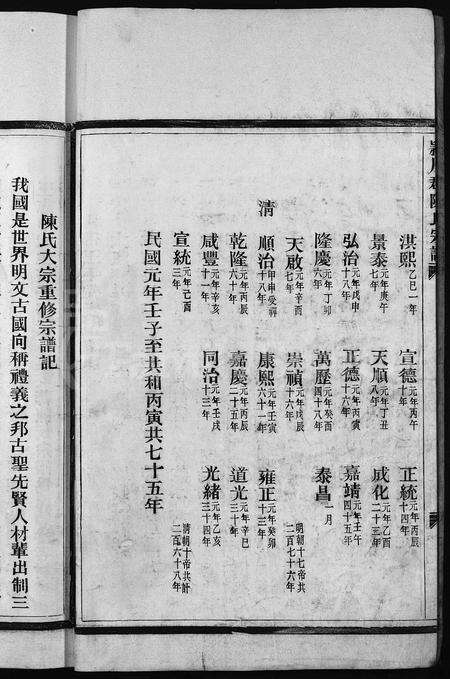 潁川郡陳氏宗譜
洪熙 乙巳一年 宣德 元年丙午十年 正統 元年丙辰十四年
景泰 元年庚午七年 天順 元年丁丑八年 成化 元年乙酉二十三年
弘治 元年戊申十八年 正德 元年丙寅十六年 嘉靖 元年壬午四十五年
隆慶 元年丁卯六年 萬歷 元年癸酉四十八年 泰昌 一月
天啟 元年辛酉七年 崇禎 元年戊辰十六年 明朝十七帝共二百七十六年
清
順治 甲申受禪十八年 康熙 元年壬寅六十一年 雍正 元年癸卯十三年
乾隆 元年丙辰六十年 嘉慶 元年丙辰二十五年 道光 元年辛巳三十年
咸豐 元年辛亥十一年 同治 元年壬戌十三年 光緒 元年乙亥三十四年
宣統 元年己酉三年 清朝十帝共計二百六十八年
民國元年壬子至共和丙寅共七十五年
陳氏大宗重修宗譜記
我國是世界明文古國向稱禮義之邦古聖先賢人材輩出制三